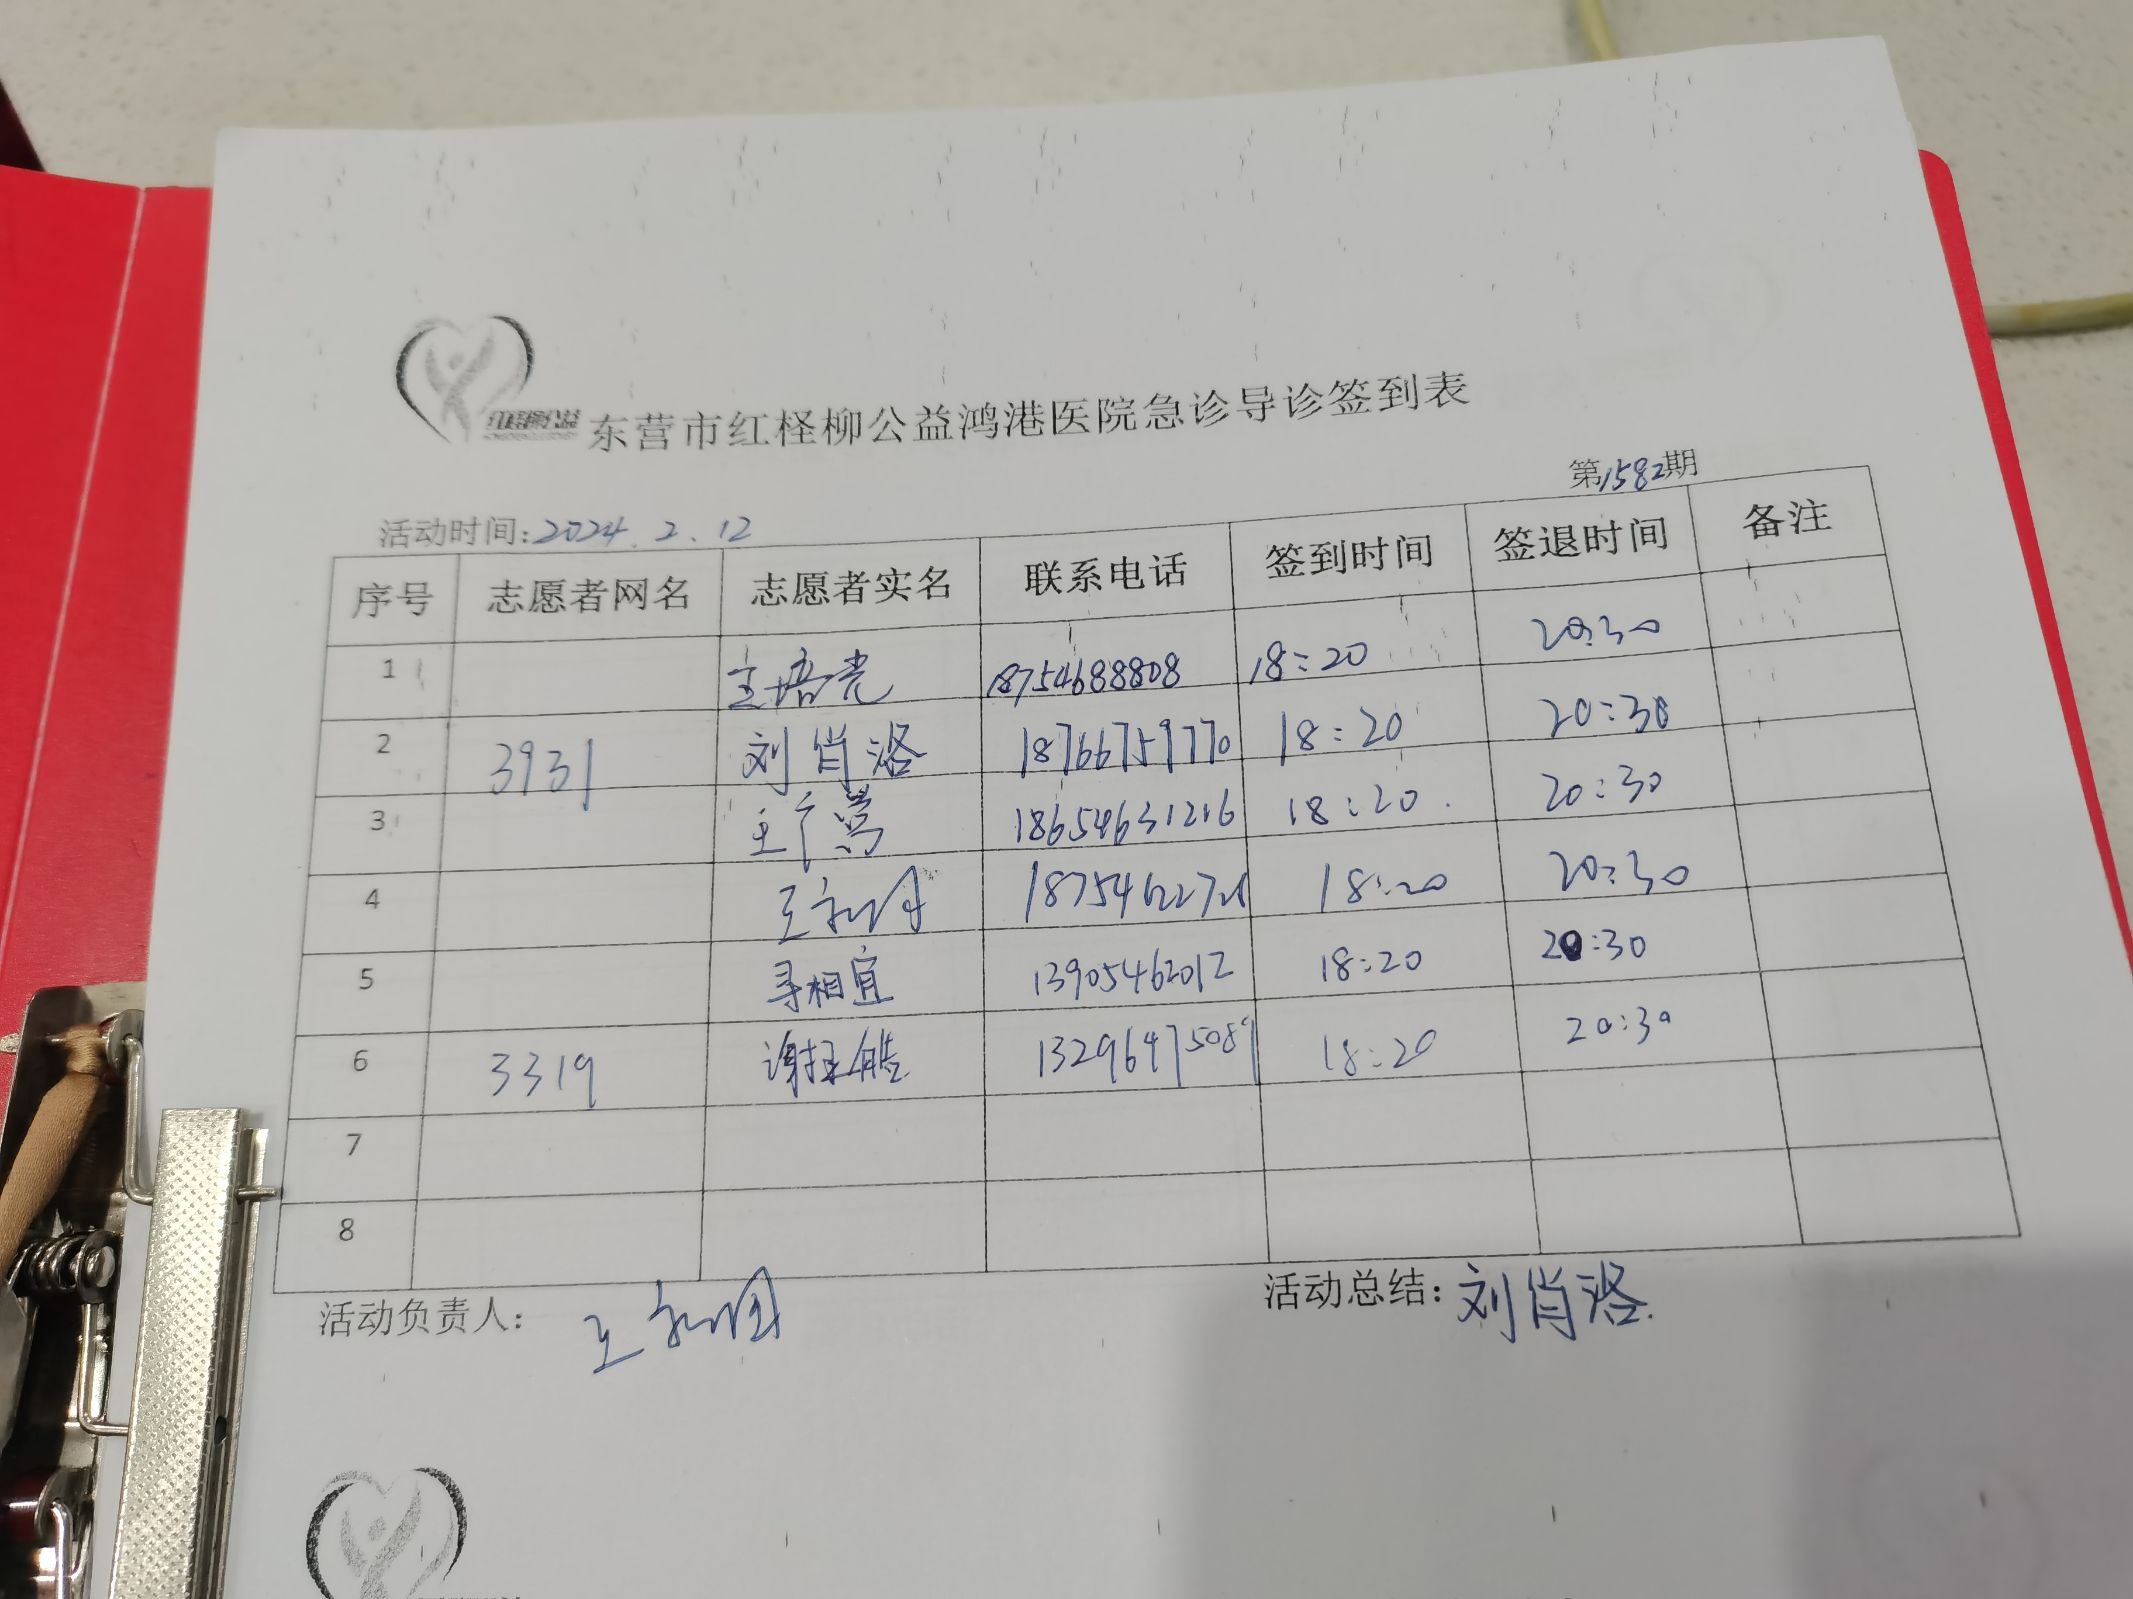 东营市红柽柳公益鸿港医院急诊导诊签到表
第1582期
活动时间:2024.2.12
序号 志愿者网名 志愿者实名 联系电话 签到时间 签退时间 备注
1 王培亮 18754688808 18:20 20:30
2 3931 刘肖洛 18766759770 18:20 20:30
3 18654631216 18:20 20:30
4 18:20 20:30
5 寻相宜 13905462012 18:20 20:30
6 3319 13296475089 18:20 20:30
7
8
活动负责人:
活动总结:刘肖洛